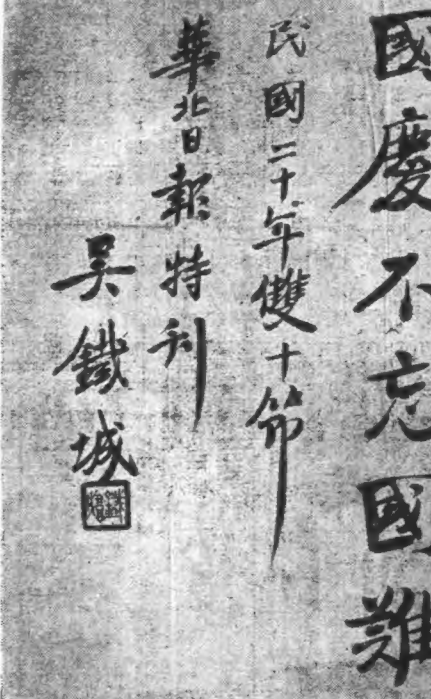 國慶不忘國難
民國二十年雙十節
華北日報特刊
吳鐵城